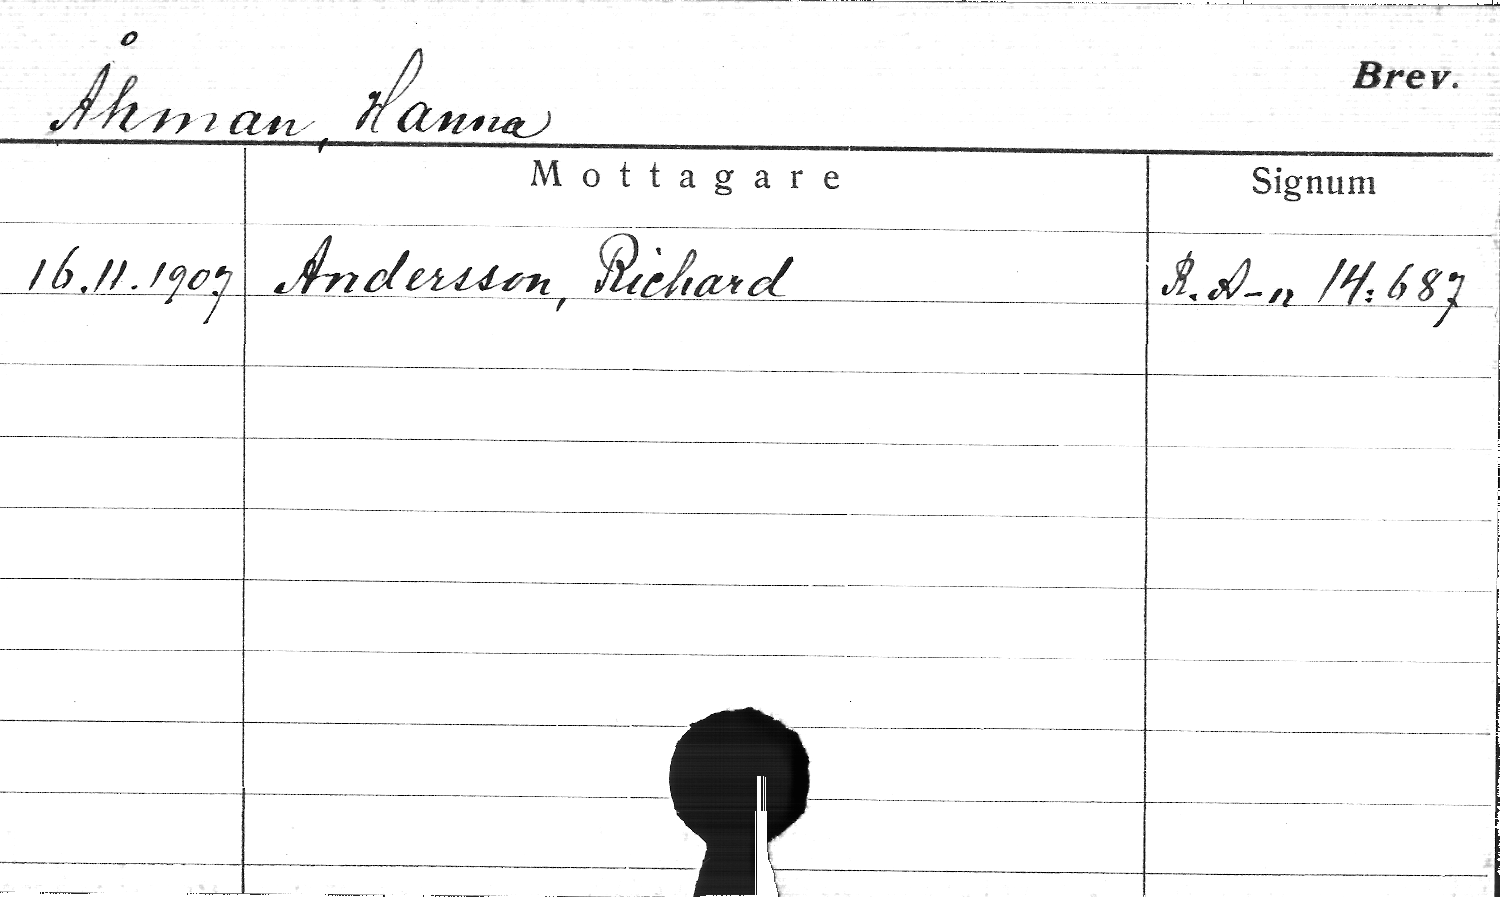 Åhman, Hanna
Brev.
Mottagare
Signum
16.11.1907
Andersson, Richard
R. A-n 14:687